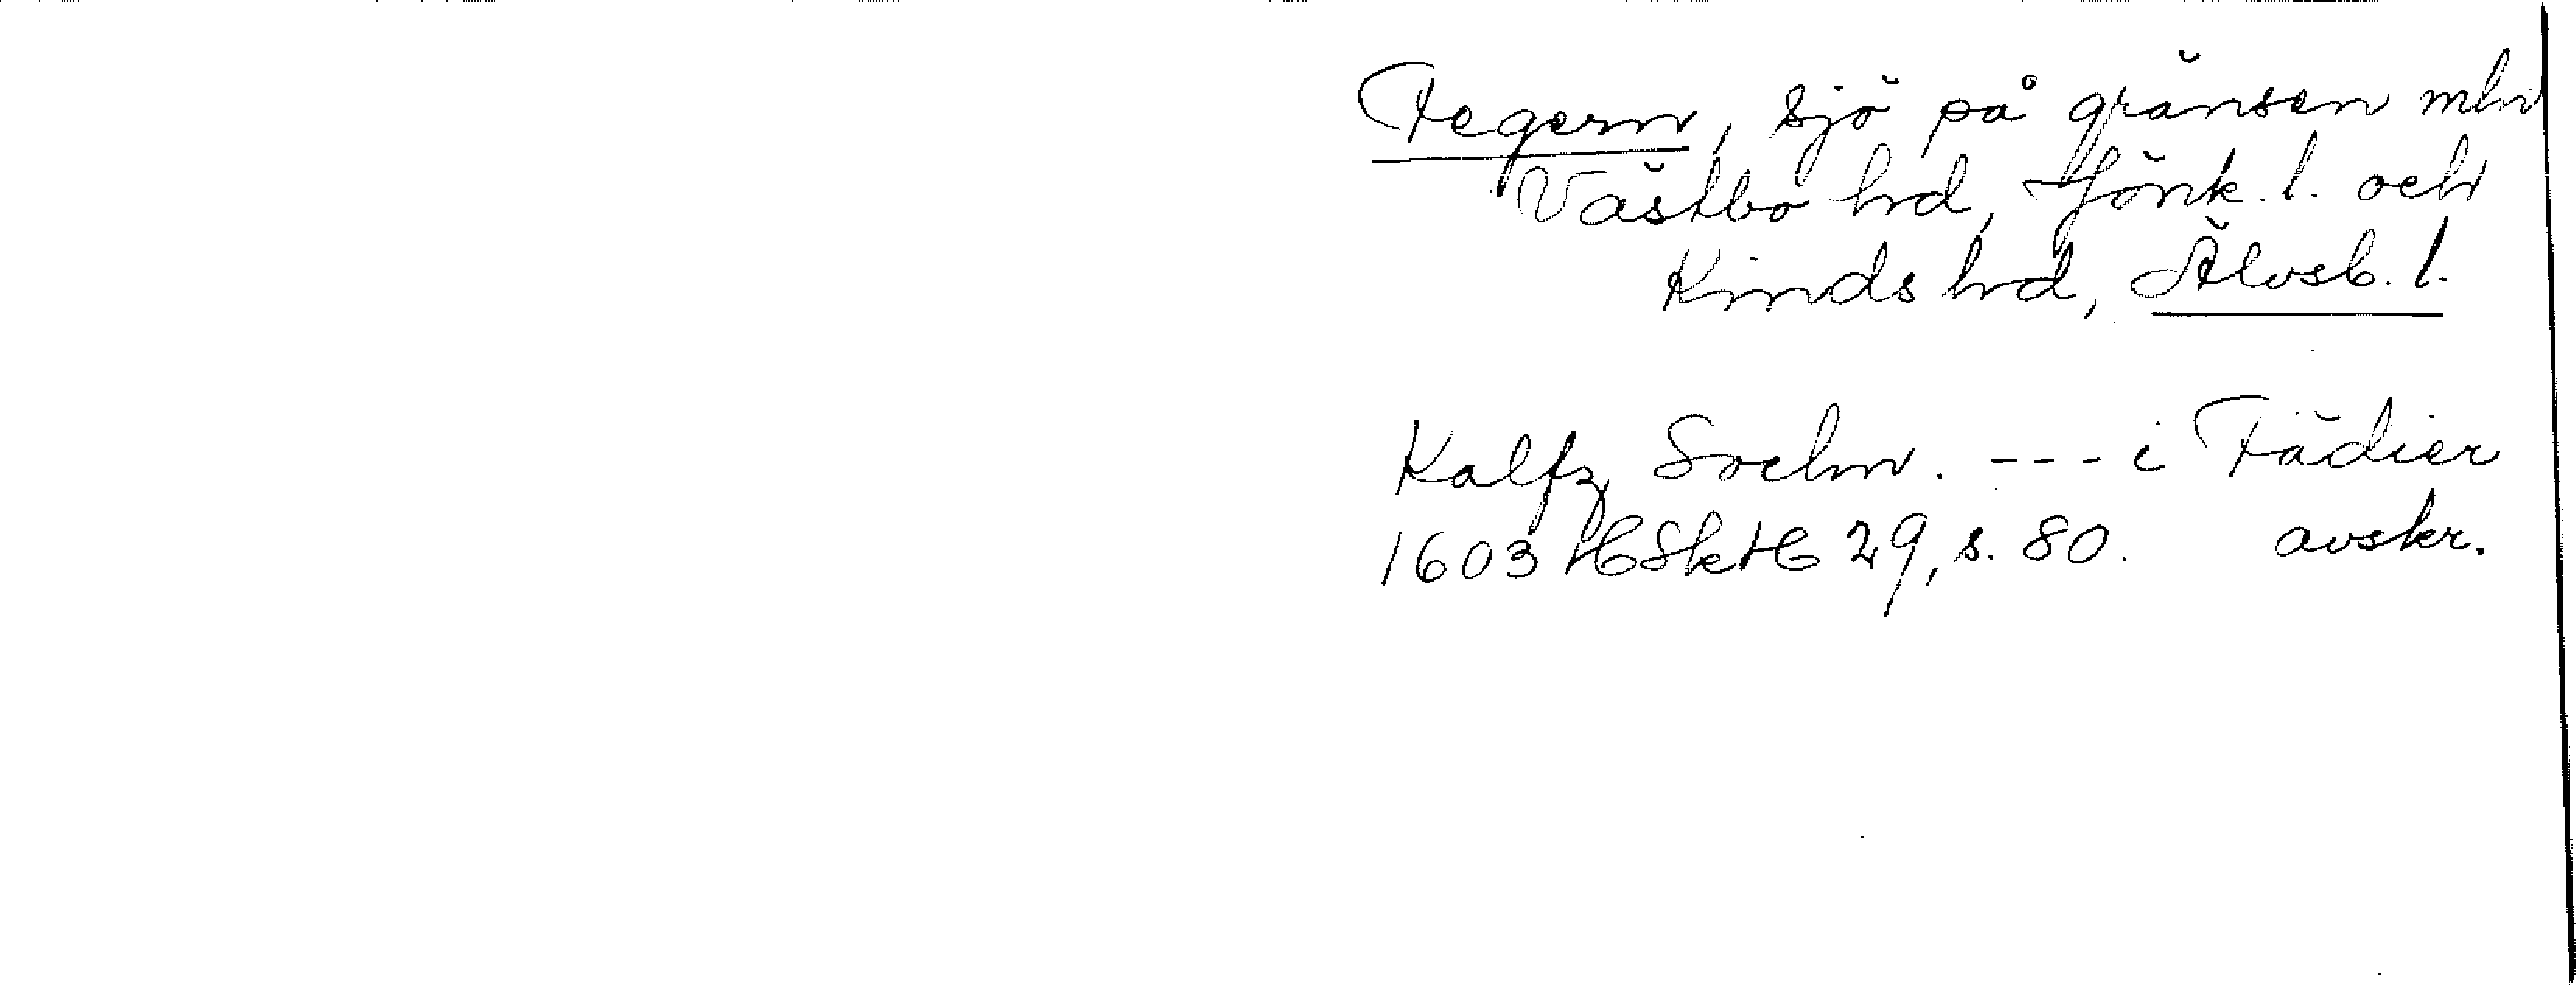 Fegern, sjö på gränsen mln
Västbo hd, Jönk. l. och
Kinds hd, Älvsb. l.
Kalfz Sochn. --- i Fädier
1603 HSkH 29, s. 80. avskr.